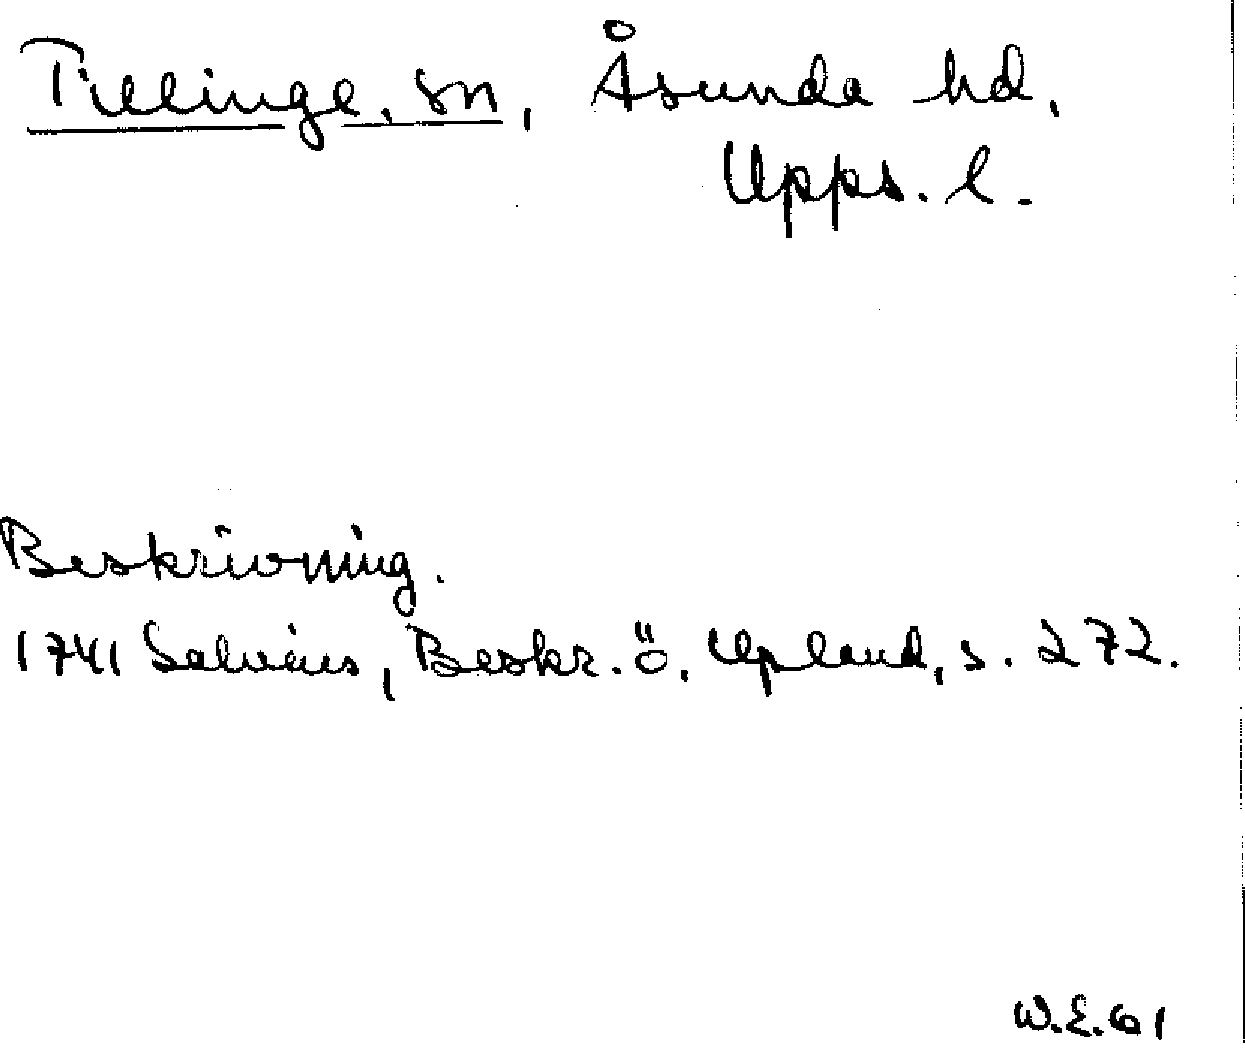 Tillinge, sn, Åsunda hd,
Upps. l.
Beskrivning.
1741 Salvius, Beskr. ö. Upland, s. 272.
W.E. 61